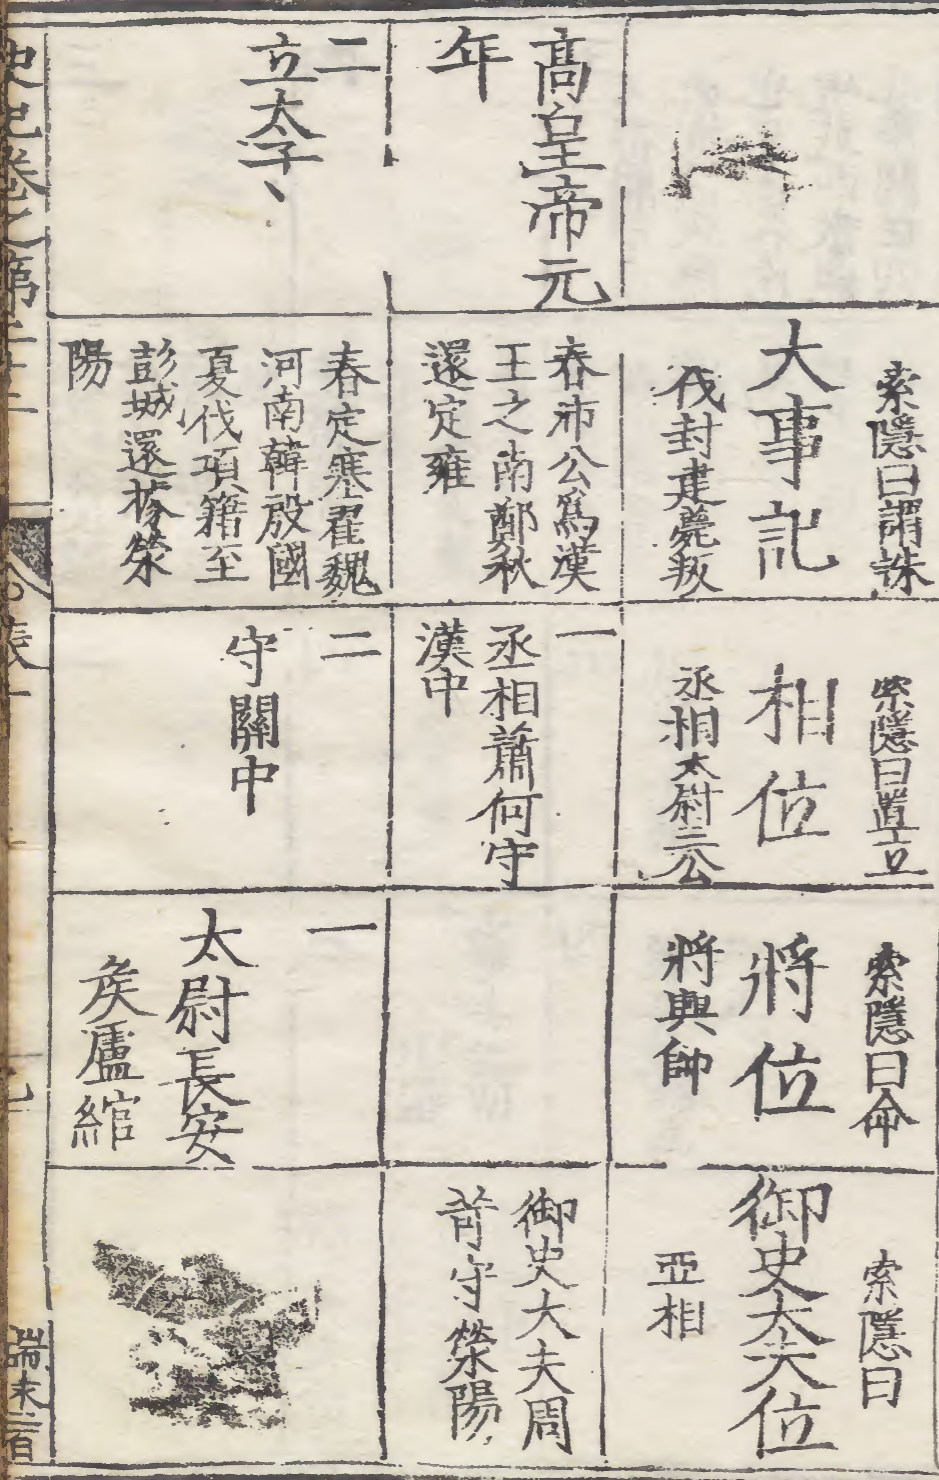 索隱曰謂誅
大事記
伐封建薨叛
索隱曰置立
相位
丞相太尉三公
索隱曰命
將位
將興師
索隱曰
御史大夫位
亞相
高皇帝元
年
春沛公爲漢
王之南鄭秋
還定雍
一
丞相蕭何守
漢中
御史大夫周
苛守滎陽
二
立太子
春定塞翟魏
河南韓殷國
夏伐項籍至
彭城還據滎
陽
二
守關中
一
太尉長安
侯盧綰
史記卷之第二十二
表十